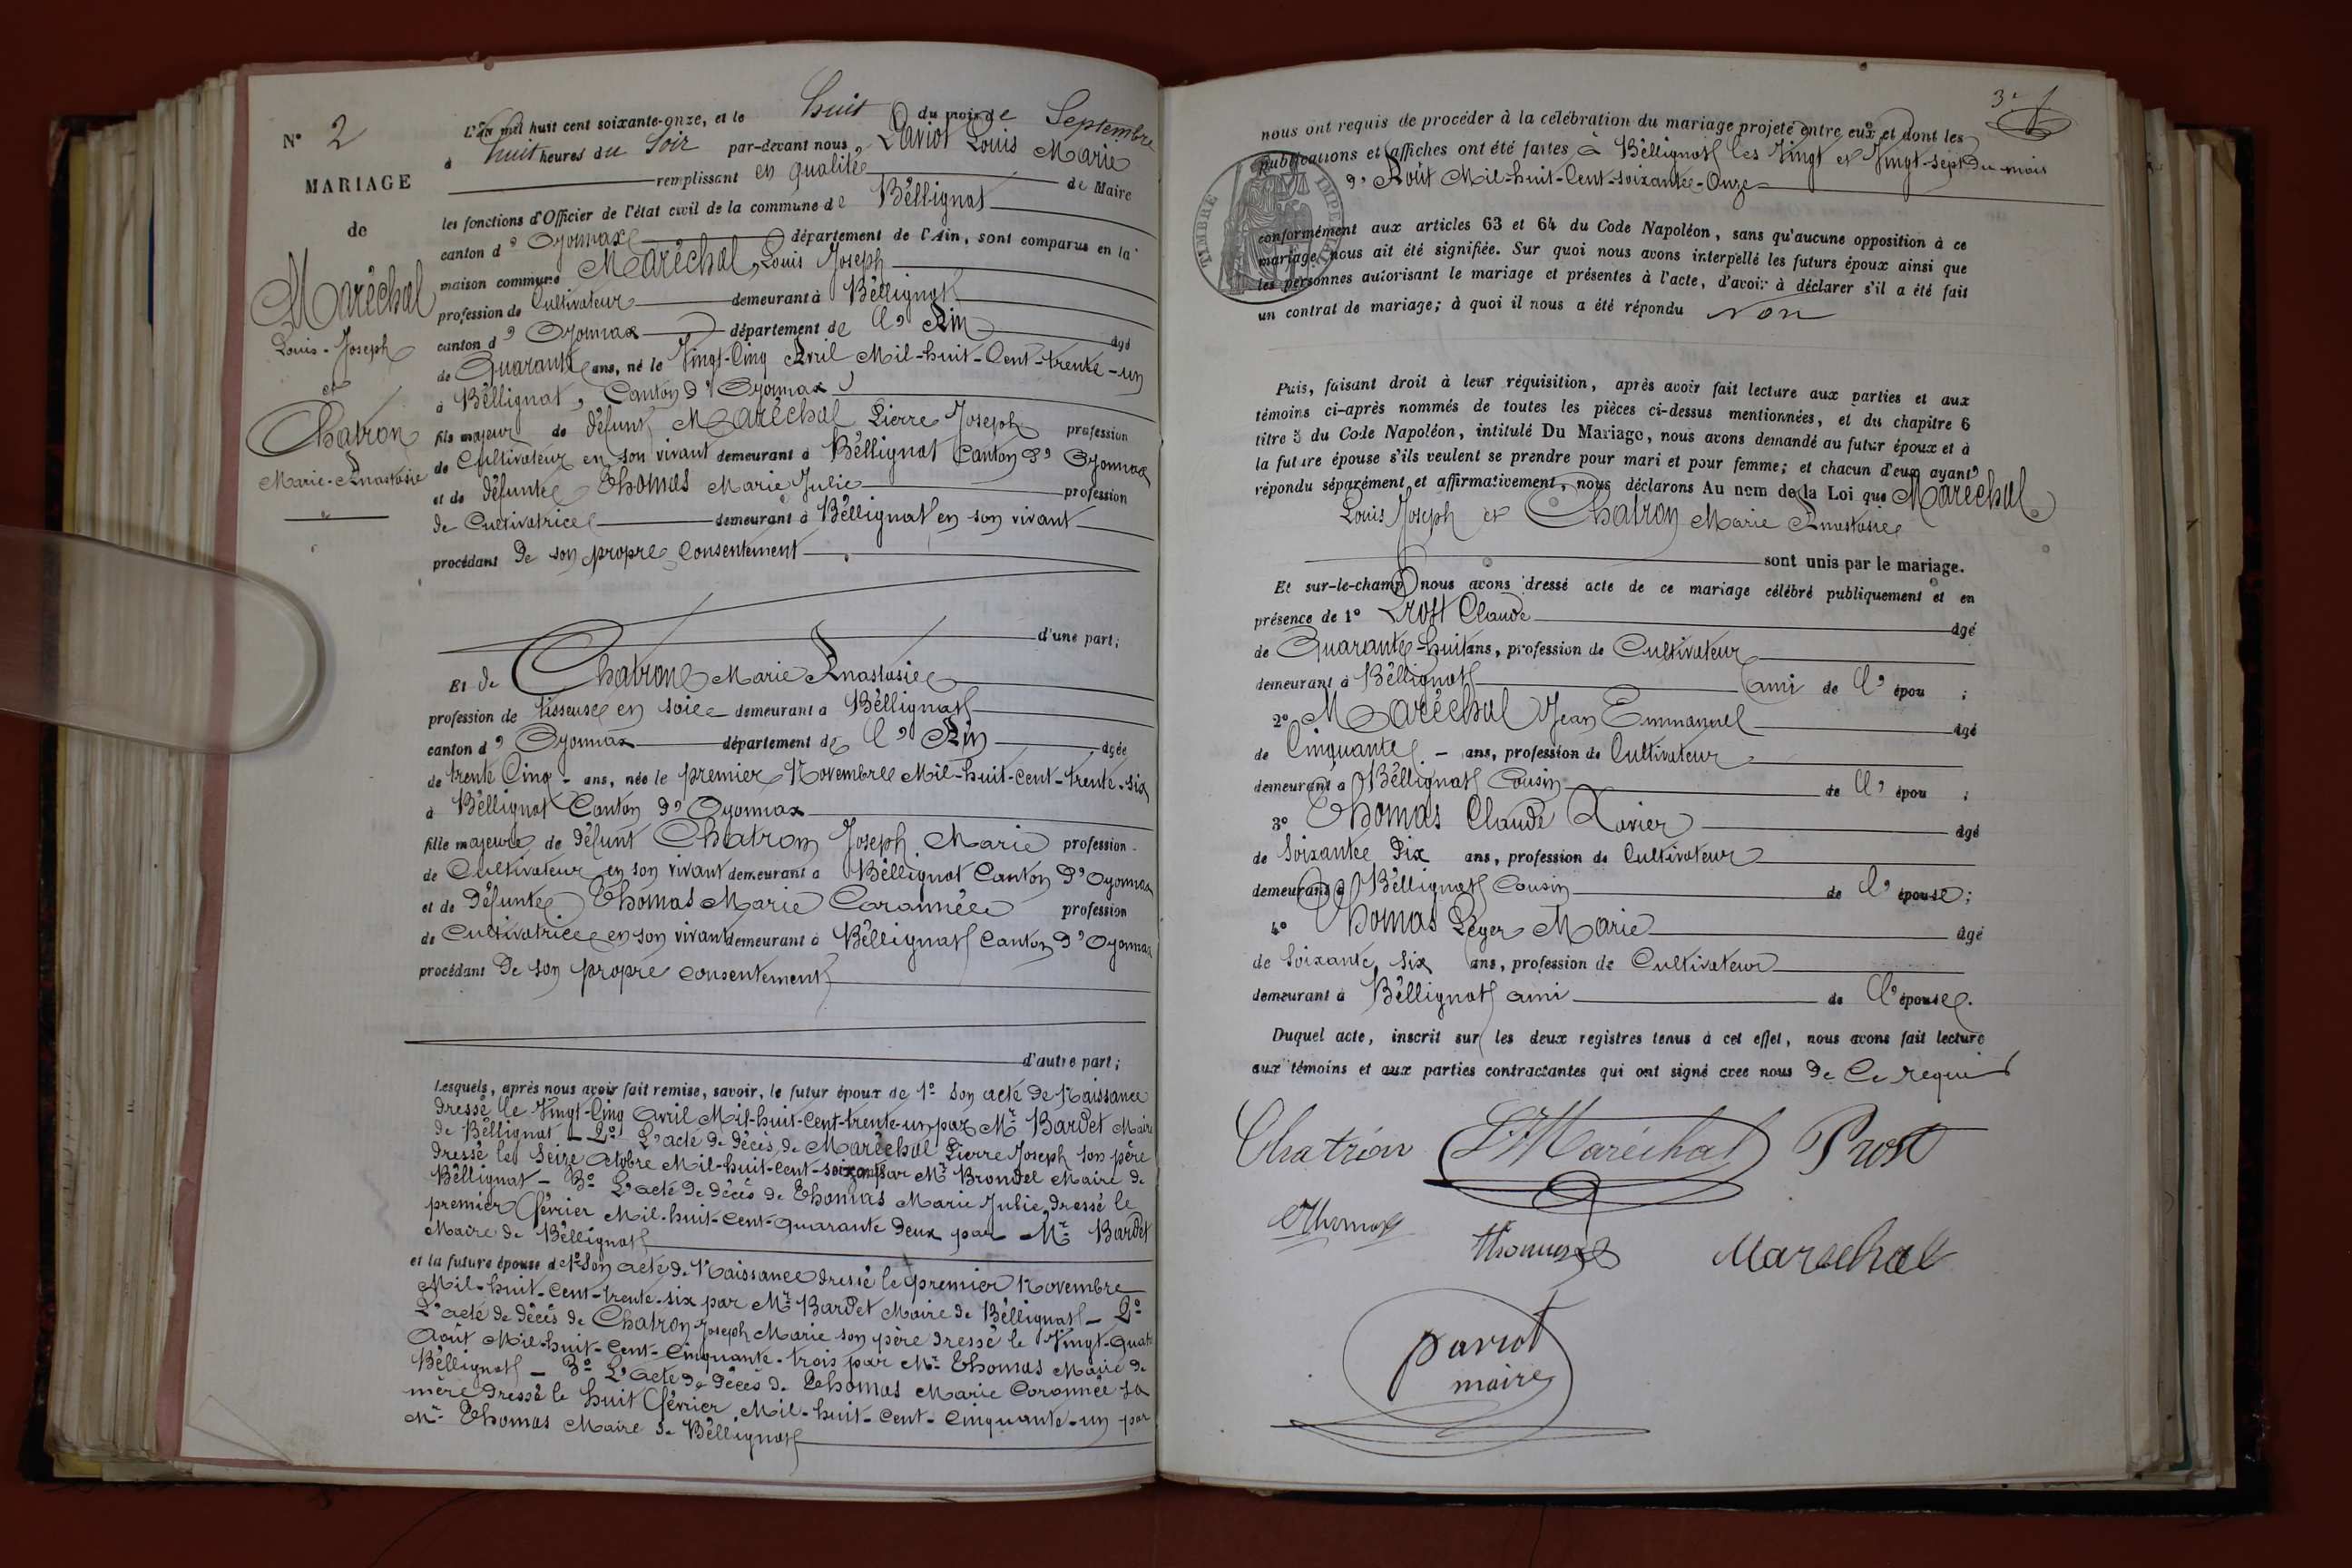 N° 2
MARIAGE
de
Maréchal
Louis-Joseph
et
Chatron
Marie-Anastasie
L'An mil huit cent soixante-onze, et le huit du mois de Septembre
à huit heures du Soir par-devant nous, Paviot Louis Marie
remplissant en qualité de Maire
les fonctions d'Officier de l'état civil de la commune de Béllignat
canton d' Oyonnax département de l'Ain, sont comparus en la
maison commune Maréchal, Louis Joseph
profession de Cultivateur demeurant à Béllignat
canton d' Oyonnax département de l' Ain âgé
de Quarante ans, né le Vingt-Cinq Avril Mil-huit-Cent-trente-un
à Béllignat, Canton d'Oyonnax
fils majeur de défunt Maréchal Pierre Joseph profession
de Cultivateur en son vivant demeurant à Béllignat Canton d'Oyonnax
et de défunte Thomas Marie Julie profession
de Cultivatrice demeurant à Béllignat en son vivant
procédant De son propre Consentement
d'une part;
Et de Chatron Marie Anastasie
profession de tisseuse en soie demeurant à Béllignat
canton d' Oyonnax département de l' Ain âgée
de trente Cinq ans, née le premier Novembre Mil-huit-cent-trente-six
à Béllignat Canton d'Oyonnax
fille majeure de défunt Chatron Joseph Marie profession
de Cultivateur en son vivant demeurant à Béllignat Canton d'Oyonnax
et de Défunte Thomas Marie Coronnée profession
de Cultivatrice en son vivant demeurant à Béllignat Canton d'Oyonnax
procédant De son propre consentement
d'autre part;
Lesquels, après nous avoir fait remise, savoir, le futur époux de 1° Son acte de Naissance
dressé le Vingt-Cinq Avril Mil-huit-Cent-trente-un par Mr Bardet Maire
de Béllignat - 2° L'acte de décès de Maréchal Pierre Joseph son père
dressé le Seize Octobre Mil-huit-cent-soixante par Mr Brondel Maire de
Béllignat - 3° L'acte de décès de Thomas Marie Julie dressé le
premier février Mil-huit-Cent-quarante deux par Mr Bardet
Maire de Béllignat
et la future épouse de 1° Son acte de Naissance dressé le premier Novembre
Mil-huit-cent-trente-six par Mr Bardet Maire de Béllignat - 2°
L'acte de décès de Chatron Joseph Marie son père dressé le Vingt-quatre
Août Mil-huit-Cent-Cinquante-trois par Mr Thomas Maire de
Béllignat - 3° L'acte de décès de Thomas Marie Coronnée sa
mère dressé le huit février Mil-huit-Cent-Cinquante-un par
Mr Thomas Maire de Béllignat
3
nous ont requis de procéder à la célébration du mariage projeté entre eux et dont les
publications et affiches ont été faites à Béllignat les Vingt et Vingt-Sept du mois
d'Août Mil-huit-Cent-soixante-Onze
TIMBRE IMPERIAL
conformément aux articles 63 et 64 du Code Napoléon, sans qu'aucune opposition à ce
mariage nous ait été signifiée. Sur quoi nous avons interpellé les futurs époux ainsi que
les personnes autorisant le mariage et présentes à l'acte, d'avoir à déclarer s'il a été fait
un contrat de mariage; à quoi il nous a été répondu Non
Puis, faisant droit à leur réquisition, après avoir fait lecture aux parties et aux
témoins ci-après nommés de toutes les pièces ci-dessus mentionnées, et du chapitre 6
titre 5 du Code Napoléon, intitulé Du Mariage, nous avons demandé au futur époux et à
la future épouse s'ils veulent se prendre pour mari et pour femme; et chacun d'eux ayant
répondu séparément et affirmativement, nous déclarons Au nom de la Loi que Maréchal
Louis Joseph et Chatron Marie Anastasie
sont unis par le mariage.
Et sur-le-champ nous avons dressé acte de ce mariage célébré publiquement et en
présence de 1° Prost Claude âgé
de Quarante-huit ans, profession de Cultivateur
demeurant à Béllignat ami de l' épou ;
2° Maréchal Jean Emmanuel âgé
de Cinquante - ans, profession de Cultivateur
demeurant à Béllignat Cousin de l' épou ;
3° Thomas Claude Xavier âgé
de Soixante Dix ans, profession de Cultivateur
demeurant à Béllignat Cousin de l' épouse;
4° Thomas Léger Marie âgé
de Soixante six ans, profession de Cultivateur
demeurant à Béllignat ami de l'épouse.
Duquel acte, inscrit sur les deux registres tenus à cet effet, nous avons fait lecture
aux témoins et aux parties contractantes qui ont signé avec nous de Ce requis
Chatrion LMaréchal Prost
Thomas
Thomas Marechal
paviot
maire